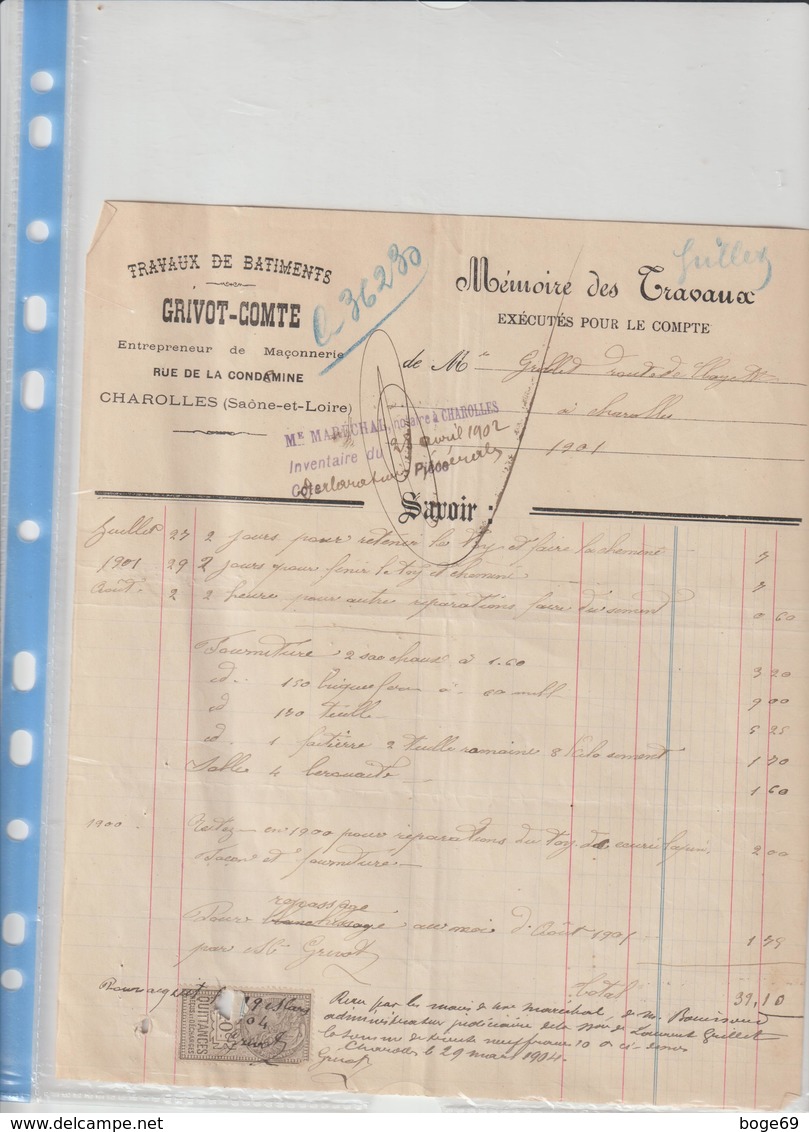 TRAVAUX DE BATIMENTS
GRIVOT-COMTE
Entrepreneur de Maçonnerie
RUE DE LA CONDAMINE
CHAROLLES (Saône-et-Loire)
36230
Guillet
Mémoire des Travaux
EXÉCUTÉS POUR LE COMPTE
de Mr
à Charolles
1901
Me MARÉCHAL, notaire à CHAROLLES
Inventaire du 28 avril 1902
Savoir :
Juillet 27 2 jours pour retenir le toy et faire la cheminé 7
1901 29 2 jours pour finir le toy et cheminé 7
Août 2 2 heure pour autre réparations faire du siment 0 60
Fourniture 2 sac chaux à 1.60 3 20
id. 150 brique 60 mill 9 00
id 170 tuille 5 25
id. 1 faitière 2 tuille romaine 8 kilo siment 1 70
Sable 4 1 60
1900 en 1900 pour réparations du toy 2 00
Façon et fourniture
repassage
Pour blanchissage au moi d'Août 1901 1 75
par Me Grivot
total 39,10
Pour acquit le 29 Mars
04
Grivot
QUITTANCES
Reçu par les mains de me Maréchal, de m. Bouissoud
administrateur judiciaire de la son de Laurent Guillet
la somme de trente neuf francs 10 c ci-dessus
Charolles le 29 mars 1904.
Grivot
boge69